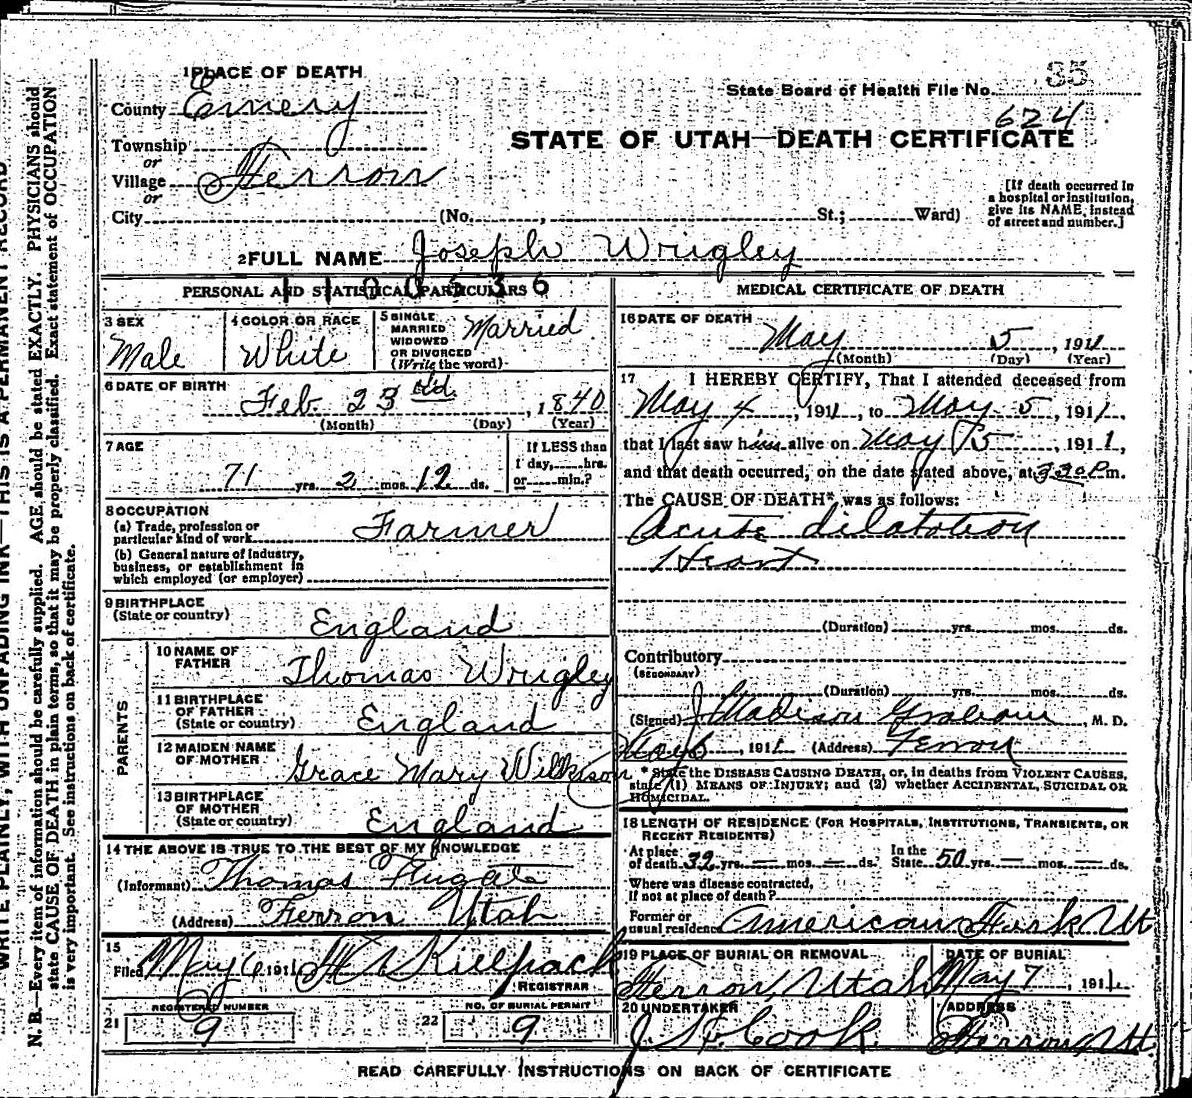 WRITE PLAINLY, WITH UNFADING INK—THIS IS A PERMANENT RECORD
N. B.—Every item of information should be carefully supplied. AGE should be stated EXACTLY. PHYSICIANS should
state CAUSE OF DEATH in plain terms, so that it may be properly classified. Exact statement of OCCUPATION
is very important. See instructions on back of certificate.
1 PLACE OF DEATH
County Emery
Township
or
Village Ferron
or
City (No. , St.; Ward)
35
State Board of Health File No.
624
STATE OF UTAH—DEATH CERTIFICATE
[If death occurred in
a hospital or institution,
give its NAME, instead
of street and number.]
2 FULL NAME Joseph Wrigley
1100536
PERSONAL AND STATISTICAL PARTICULARS
3 SEX
Male
4 COLOR OR RACE
White
5 SINGLE
MARRIED
WIDOWED
OR DIVORCED
(Write the word)
Married
6 DATE OF BIRTH
Feb. 23 , 1840
(Month) (Day) (Year)
7 AGE
71 yrs. 2 mos. 12 ds.
If LESS than
1 day, hrs.
or min.?
8 OCCUPATION
(a) Trade, profession or
particular kind of work Farmer
(b) General nature of industry,
business, or establishment in
which employed (or employer)
9 BIRTHPLACE
(State or country) England
PARENTS
10 NAME OF
FATHER Thomas Wrigley
11 BIRTHPLACE
OF FATHER
(State or country) England
12 MAIDEN NAME
OF MOTHER Grace Mary Wilkison
13 BIRTHPLACE
OF MOTHER
(State or country) England
14 THE ABOVE IS TRUE TO THE BEST OF MY KNOWLEDGE
(Informant) Thomas Fugate
(Address) Ferron Utah
15
Filed May 6 1911 Killpack
REGISTRAR
REGISTERED NUMBER
21 9
NO. OF BURIAL PERMIT
22 9
MEDICAL CERTIFICATE OF DEATH
16 DATE OF DEATH
May 5 , 1911
(Month) (Day) (Year)
17 I HEREBY CERTIFY, That I attended deceased from
May 4 , 1911, to May 5 , 1911,
that I last saw him alive on May 5 , 1911,
and that death occurred, on the date stated above, at 3:30 P m.
The CAUSE OF DEATH* was as follows:
Acute dilatation
Heart
(Duration) yrs. mos. ds.
Contributory
(SECONDARY)
(Duration) yrs. mos. ds.
(Signed) J Madison Graham , M. D.
May 6 , 1911 (Address) Ferron
* State the DISEASE CAUSING DEATH, or, in deaths from VIOLENT CAUSES,
state (1) MEANS OF INJURY; and (2) whether ACCIDENTAL, SUICIDAL OR
HOMICIDAL.
18 LENGTH OF RESIDENCE (FOR HOSPITALS, INSTITUTIONS, TRANSIENTS, OR
RECENT RESIDENTS)
At place
of death 32 yrs. — mos. — ds.
In the
State 50 yrs. — mos. — ds.
Where was disease contracted,
if not at place of death?
Former or
usual residence American Fork Ut
19 PLACE OF BURIAL OR REMOVAL
Ferron, Utah
DATE OF BURIAL
May 7 , 1911
20 UNDERTAKER
Cook
ADDRESS
Ferron, Ut
READ CAREFULLY INSTRUCTIONS ON BACK OF CERTIFICATE